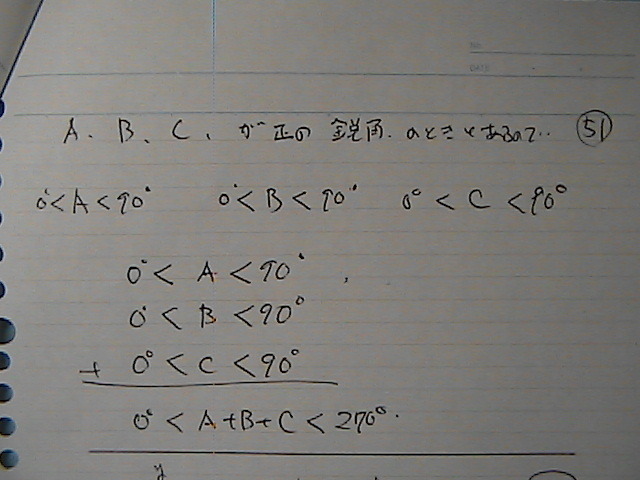 NO.
DATE
A. B. C. が正の鋭角.のときとあるので.. 51
0°<A<90° 0°<B<90° 0°<C<90°
0°<A<90°,
0°<B<90°
+ 0°<C<90°
0°<A+B+C<270°.
y